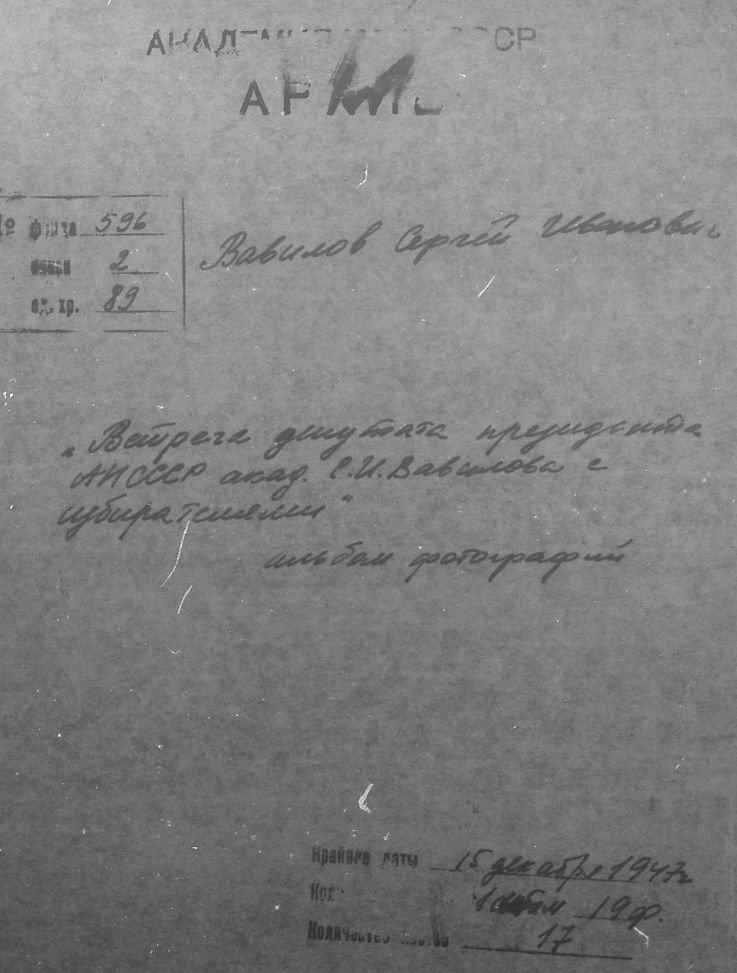 АКАДЕМИЯ СССР
АРХИВ
№ фонда 596
описи 2
ед. хр. 89
Вавилов Сергей Иванович
„Встреча депутата президента
АН СССР акад. С.И. Вавилова с
избирателями"
альбом фотографий
Крайние даты 15 декабря 1947г
Кол. 1 альбом 19ф.
Количество листов 17